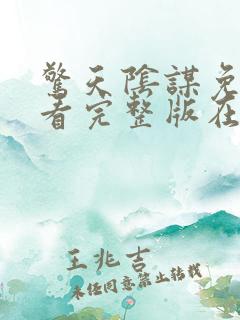 驚天陰謀免
看完整版在
王兆吉
未經同意禁止轉載